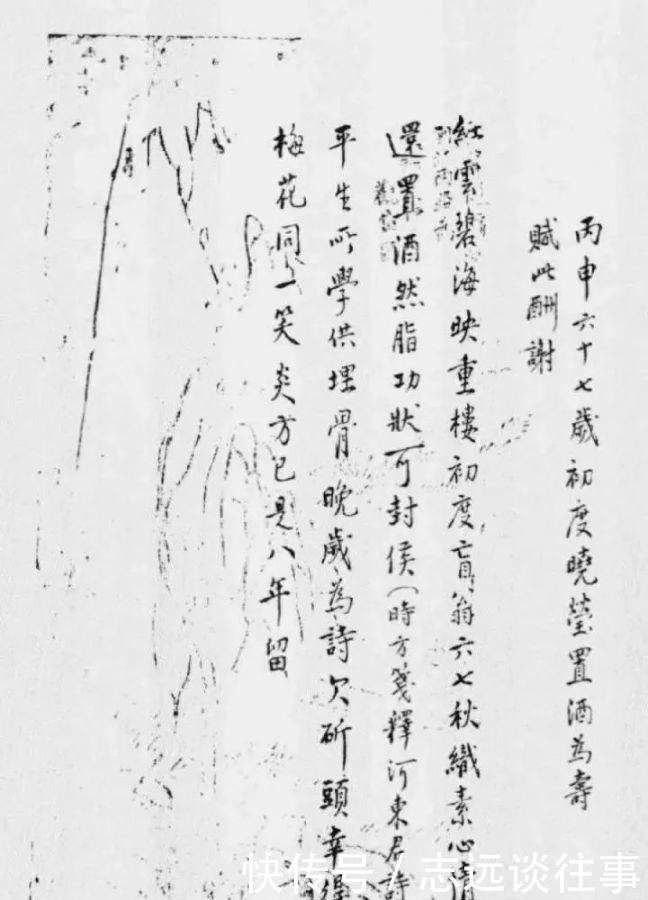 丙申六十七歲初度曉瑩置酒為壽
賦此酬謝
紅雲碧海映重樓初度盲翁六七秋織素心情
還置酒然脂功狀可封侯(時方箋釋河東君詩
平生所學供埋骨晚歲為詩欠斫頭幸得
梅花同一笑炎方已是八年留
快传号 / 志远谈往事